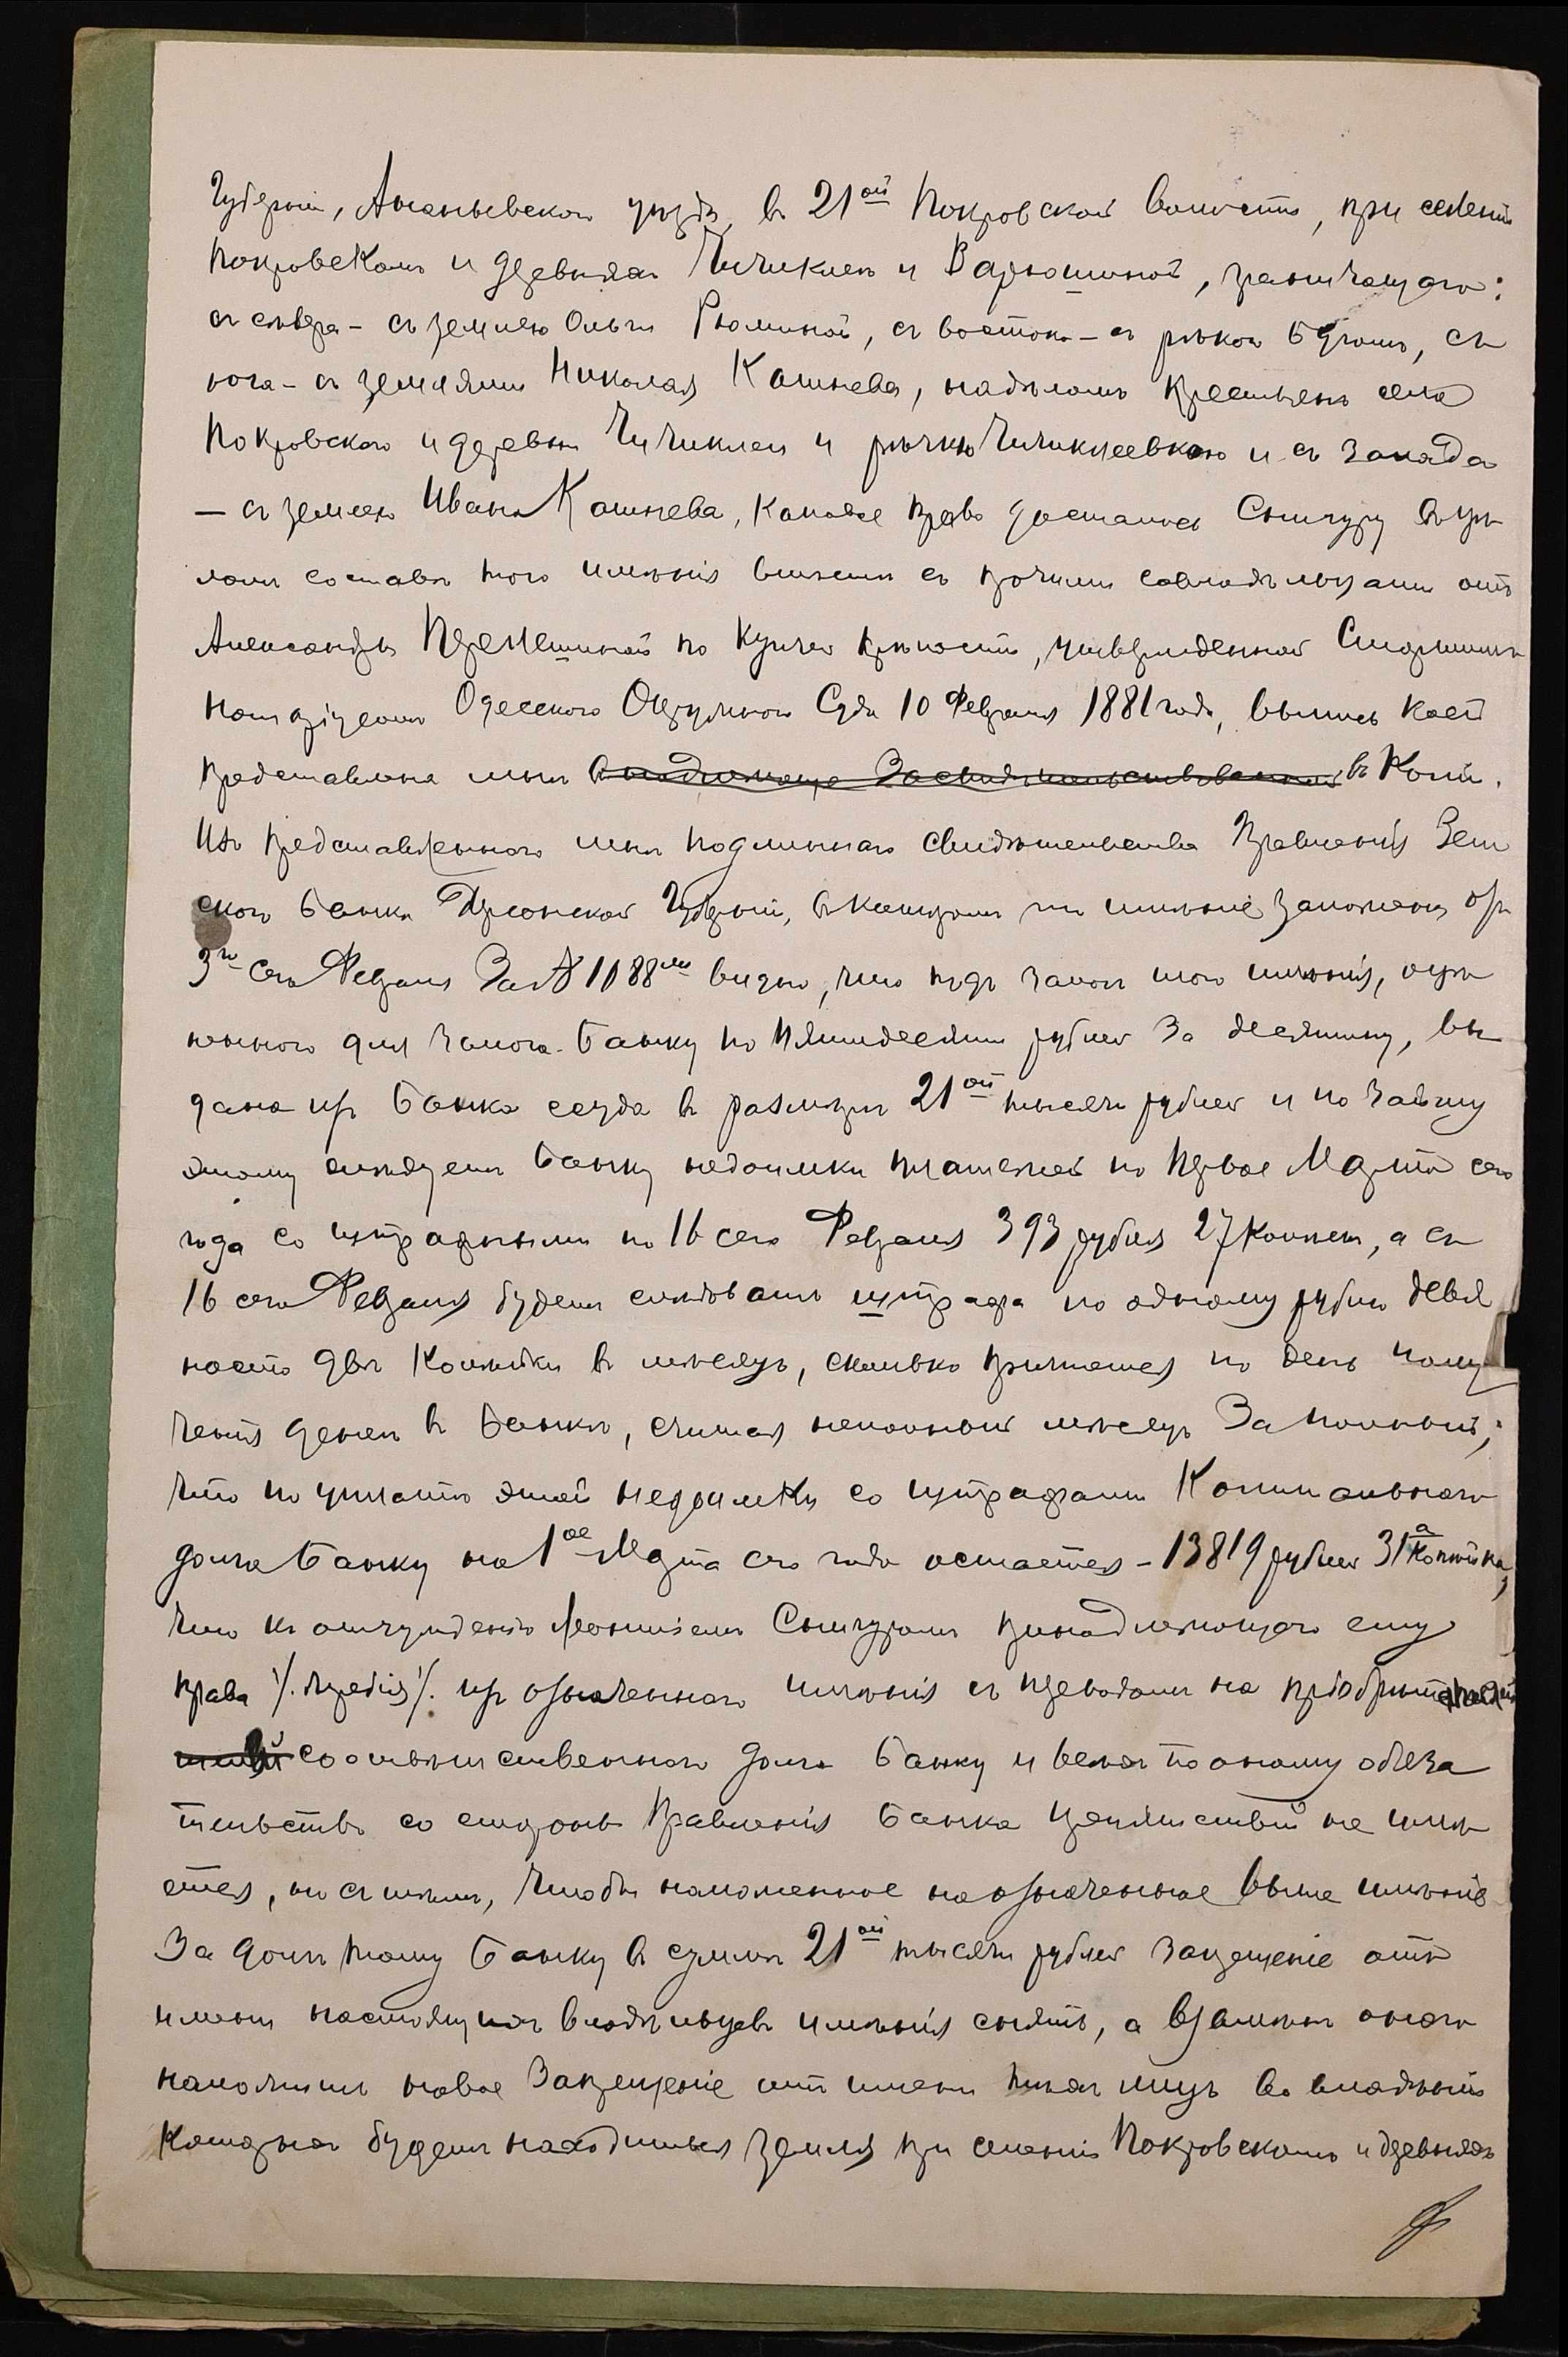 Губерніи, Ананьевскаго уѣзда, въ 21ой Покровской волости, при селеніи
Покровскомъ и деревняхъ Чичиклеѣ и Варюшиной, граничащаго:
съ сѣвера – съ землею Ольги Рюминой, съ востока – съ рѣкою Бугомъ, съ
юга – съ землями Николая Кашнева, надѣломъ крестьянъ села
Покровскаго и деревни Чичиклеи и рѣчкою Чичиклеевкою и съ запада
– съ землею Ивана Кашнева, каковое право досталось Снигуру въ цѣ
ломъ составѣ того имѣнія вмѣстѣ съ прочими совладѣльцами отъ
Александры по купчей крѣпости, утвержденной Старшимъ
Нотаріусомъ Одесскаго Окружнаго Суда 10 Февраля 1881 года, выпись коей
представлена мнѣ въ Копіи.
Изъ представленнаго мнѣ подлиннаго свидѣтельства Правленія Зем
скаго Банка Херсонской Губерніи, въ которомъ то имѣніе заложено, отъ
3го сего Февраля За № 1088мъ видно, что подъ залогъ того имѣнія, оцѣ
неннаго для залога Банку по пятидесяти рублей за десятину, вы
дана изъ Банка ссуда въ размѣрѣ 21ой тысячи рублей и по займу
этому слѣдуетъ Банку недоимки платежей по первое Марта сего
года со штрафными по 16 сего Февраля 393 рубля 27 копѣекъ, а съ
16 сего Февраля будетъ слѣдовать штрафа по одному рублю девя
носто двѣ копѣйки въ мѣсяцъ, сколько причтется по день полу
ченія денегъ въ Банкѣ, считая неполный мѣсяцъ за полный;
что по уплатѣ этой недоимки со штрафами Капитальнаго
долга Банку на 1ое Марта сего года остается – 13819 рублей 31а копѣйка,
что къ отчужденію Леонтіемъ Снигуромъ принадлежащаго ему
права /.жребія/. изъ означеннаго имѣнія съ переводомъ на
соотвѣтственнаго долга Банку и всѣхъ по оному обяза
тельствъ со стороны Правленія Банка препятствій не имѣ
ется, но съ тѣмъ, чтобы наложенное на означенное выше имѣніе
за долгъ тому Банку въ суммѣ 21ой тысячи рублей запрещеніе отъ
имени настоящихъ владѣльцевъ имѣнія снять, а взамѣнъ онаго
наложить новое запрещеніе отъ имени тѣхъ лицъ во владѣніи
которыхъ будетъ находиться земля при селеніи Покровскомъ и деревняхъ